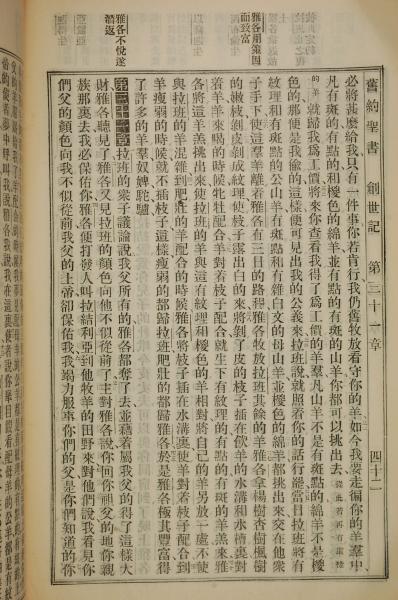 舊約聖書 創世記 第三十一章 四十二
雅各用策因而致富
雅各不悅遂潛返
必將甚麼給我只有一件事你若肯行我仍舊牧放看守你的羊如今我要走徧你的羊羣中
凡有斑的有點的和椶色的綿羊並有點的有斑的山羊你都可以挑出去從此若再有這樣
的羊就歸我爲工價將來你查看我得了爲工價的羊羣凡山羊不是有斑點的綿羊不是椶
色的那便是我偷的這樣便可見出我的公義來拉班說就照着你的話行罷當日拉班將有
紋理和有斑點的公山羊有斑點和有雜白文的母山羊並椶色的綿羊都挑出來交在他衆
子手下使這羊羣離着雅各有三日的路程雅各牧放拉班其餘的羊雅各拿楊樹杏樹楓樹
的嫩枝剝皮剝成紋理使枝子露出白的來將剝了皮的枝子插在飲羊的水溝和水槽裏對
着羊羊來喝的時候牝牡配合羊對着枝子配合就生下有紋理的有點的有斑的羊羔來雅
各將這羊羔挑出來使拉班的羊與這有紋理和椶色的羊相對將自己的羊另放一處不使
與拉班的羊混雜到肥壯的羊配合的時候雅各將枝子插在水溝裏使羊對着枝子配合到
羊瘦弱的時候就不插枝子這樣瘦弱的都歸拉班肥壯的都歸雅各於是雅各極其豐富得
了許多的羊羣奴婢駝驢
第三十一章拉班的衆子議論說我父所有的雅各都奪了去並藉着屬我父的得了這樣大
財雅各聽見了雅各又見拉班的顏色向他不似從前了主對雅各說你回你祖父的地你親
族那裏去我必保佑你雅各便打發人叫拉結利亞到他牧羊的田野來對他們說我看見你
們父的顏色向我不似從前我父的上帝卻保佑我我竭力服事你們的父是你們知道的你